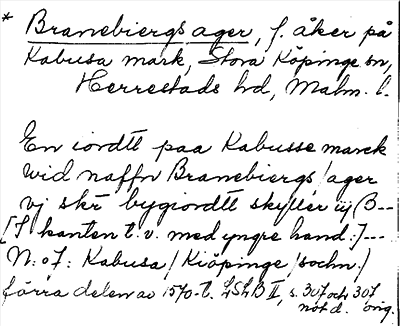 * Branebiergs ager, f. åker på
Kabusa mark, Stora Köpinge sn,
Herrestads hd, Malm. l.
En iordtt paa Kabusse marck
wid naffn Branebiergs/ager
vj skr bygiordtt skyller iij (B--
[I kanten t.v. med yngre hand:]---
N:o 7: Kabusa/Kiöpinge/sochn./
förra delen av 1570-t. LSLB II, s. 307 och 307
not d. orig.